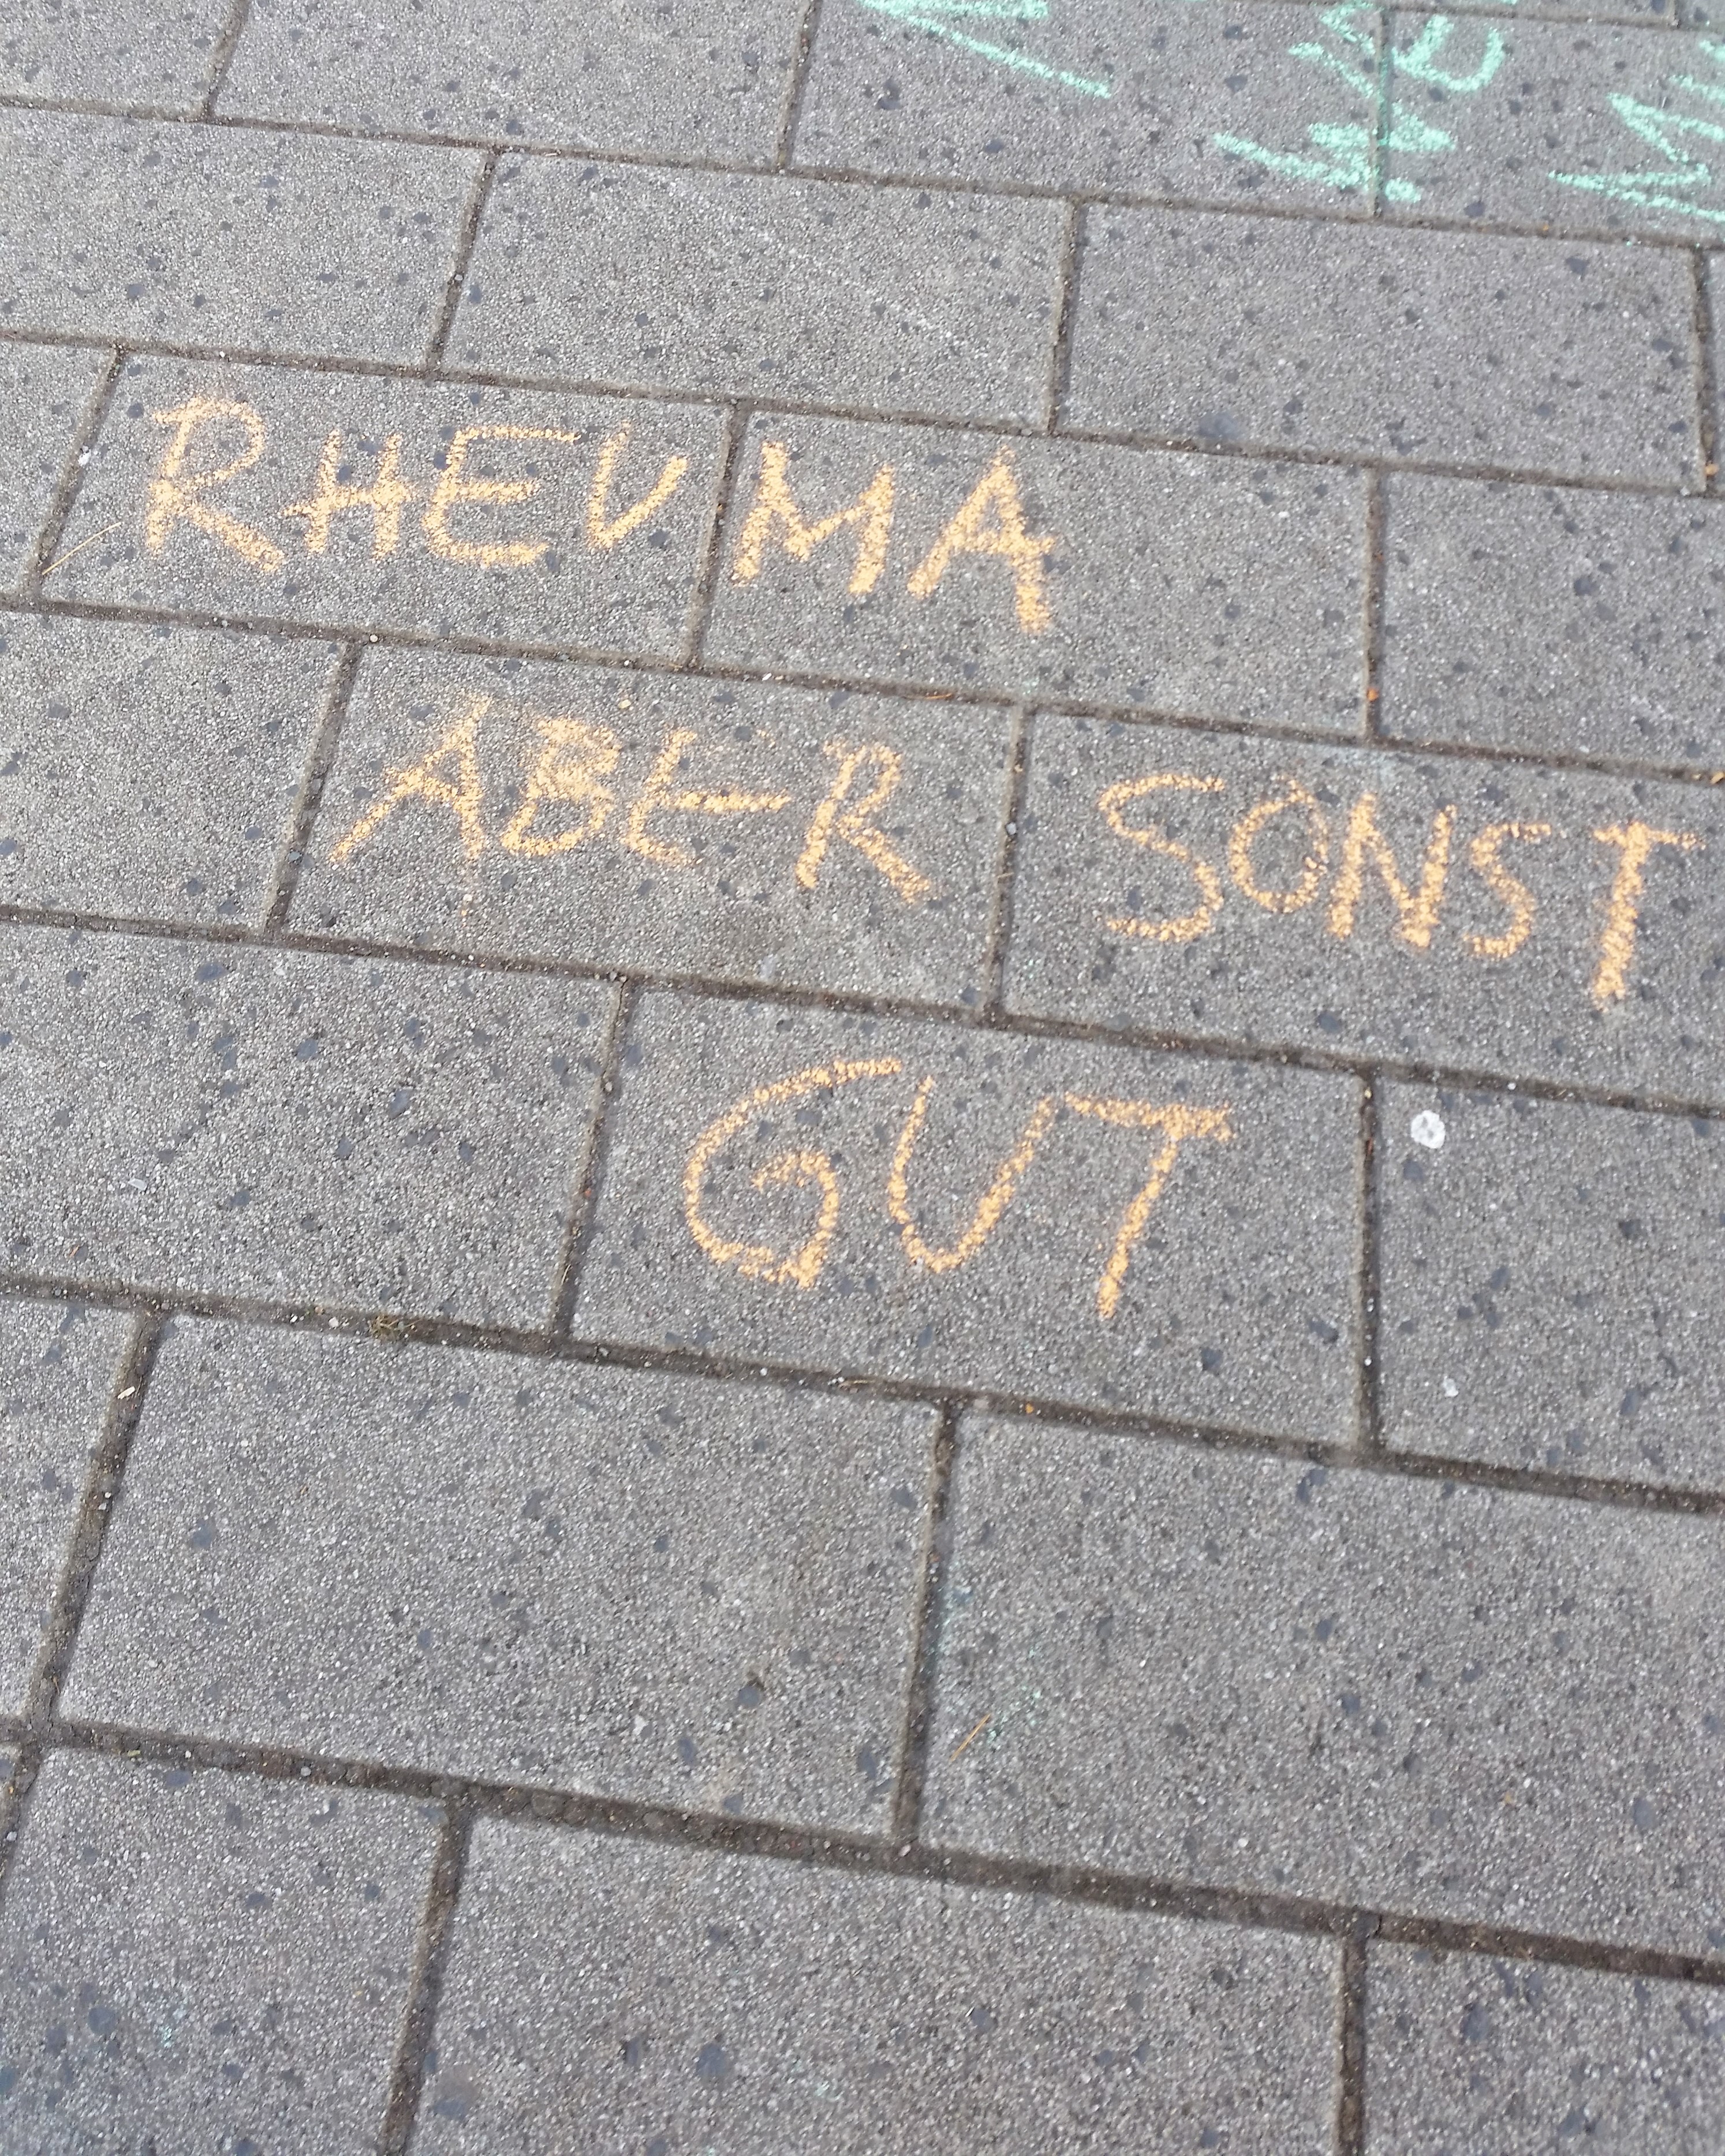 RHEUMA
ABER SONST
GUT